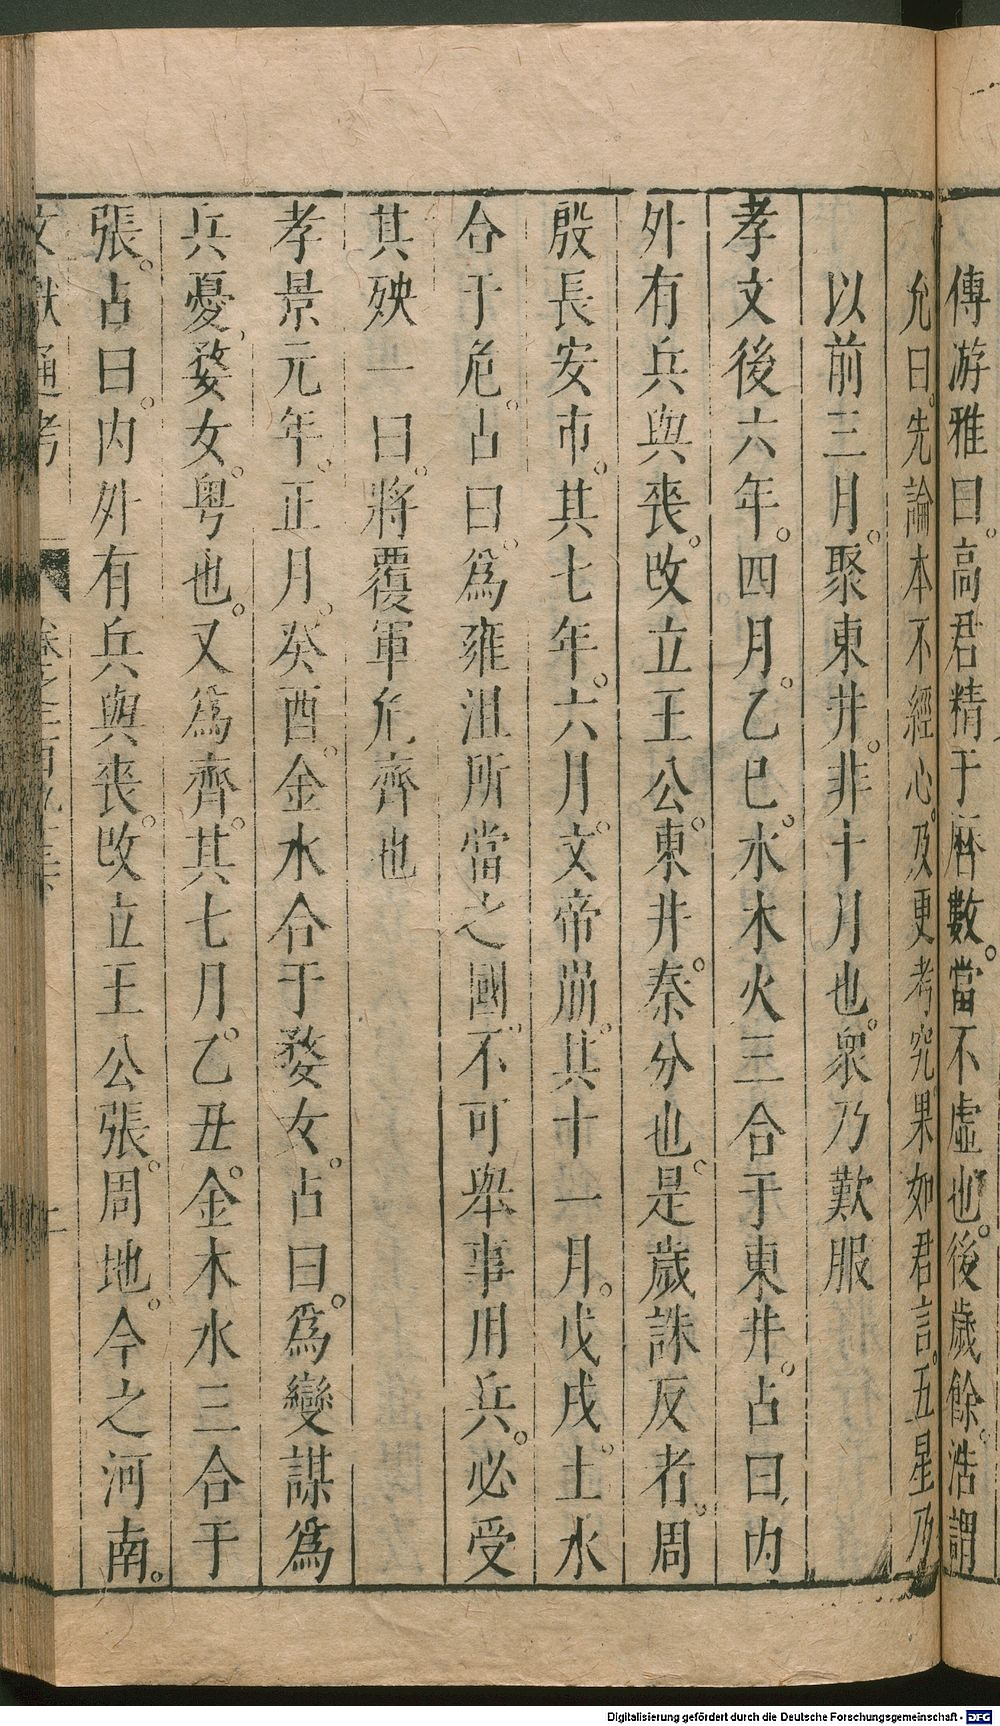 傳游雅曰。高君精于曆數。當不虛也。後歲餘。浩謂
允曰。先論本不經心。及更考究。果如君言。五星乃
以前三月。聚東井。非十月也。衆乃歎服
孝文後六年。四月。乙巳。水木火三合于東井。占曰、內
外有兵與喪。改立王公。東井。秦分也。是歲誅反者。周
殷長安市。其七年。六月。文帝崩。其十一月。戊戌。土水
合于危。占曰。爲雍沮所當之國。不可舉事用兵。必受
其殃一曰。將覆軍危齊也
孝景元年。正月。癸酉。金水合于婺女。占曰。爲變謀爲
兵憂、婺女。粤也。又爲齊。其七月。乙丑。金木水三合于
張。占曰。內外有兵與喪。改立王公張。周地。今之河南。
文獻通考
Digitalisierung gefördert durch die Deutsche Forschungsgemeinschaft - DFG